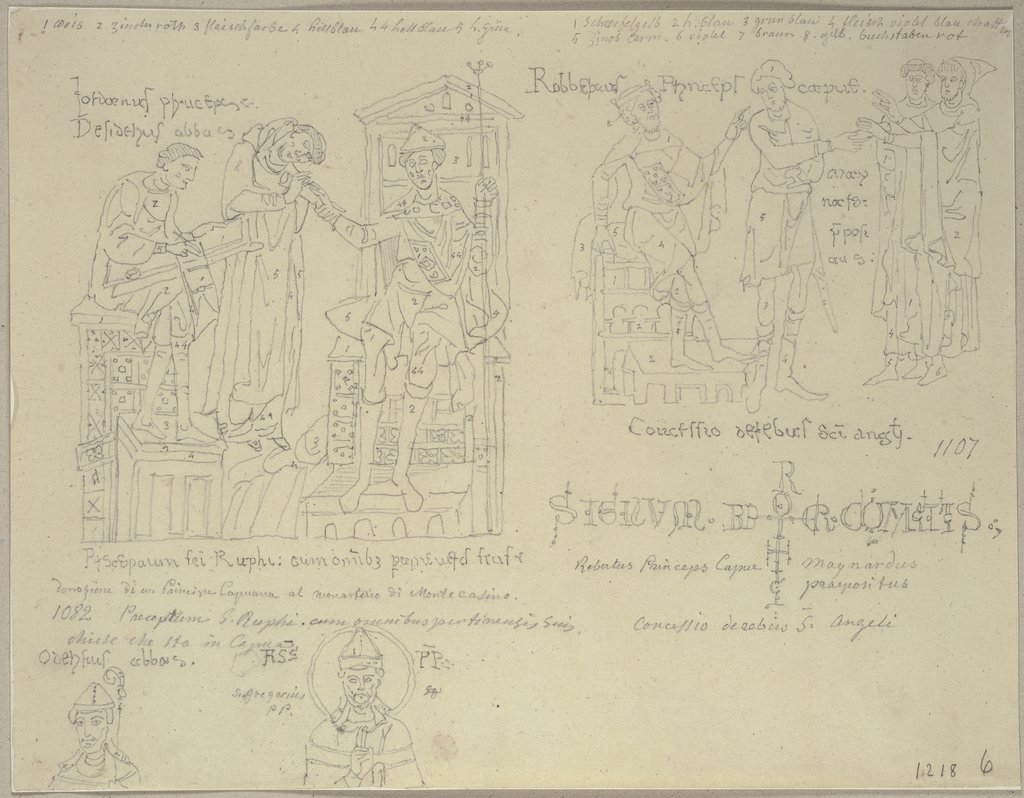 1 weis 2 zinoberroth 3 fleischfarbe 4 hellblau 44 hellblau 5 h. grün.
1 Schwefelgelb 2 h. blau 3 grün blau 4 fleisch violet blau
5 zinob carm. 6 violet 7 braun 8. gelb. buchstaben rot
Jordanus princeps.
Desiderius abbas
Robbertus Princeps capue.
maay
nardus
p̄posi
tus.
Concessio de rebus Sci angli.
1107
SIGNUM. ROB R. COMITIS.
Ruphi: cum omibz
Robertus Princeps Capue
Maynardus
praepositus
donazione di un Principe Capuana al monasterio di Montecasino.
1082 Preceptum S. Ruphi. cum omnibus pertinensis suis
chiese che sta in Capua
Concessio de rebus S. Angeli
Oderisius abbas.
PP.
S. Gregorius
PP.
1218 6